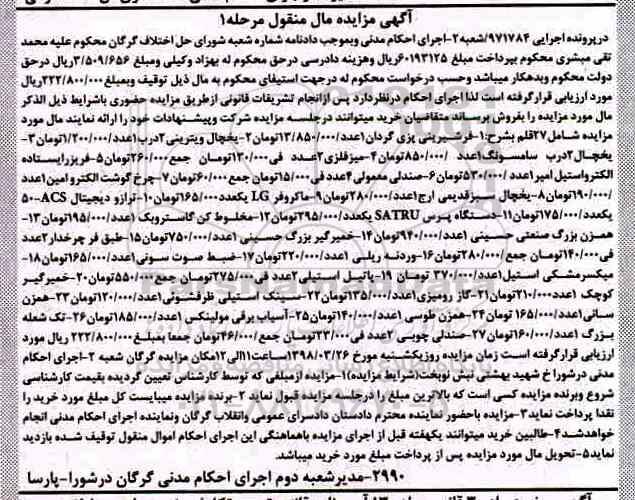 آگهی مزایده مال منقول مرحله۱
در پرونده اجرایی ۹۷۱۷۸۴/شعبه۲-اجرای احکام مدنی وبموجب دادنامه شماره شعبه شورای حل اختلاف گرگان محکوم علیه محمد
تقی مبشری محکوم بپرداخت مبلغ ۶۰۱۹۳۱۲۵ریال وهزینه دادرسی درحق محکوم له بهزاد وکیلی ومبلغ ۳/۵۰۹/۶۵۶ریال درحق
دولت محکوم وبدهکار میباشد وحسب درخواست محکوم له درجهت استیفای محکوم به مال ذیل توقیف وبمبلغ۲۲۲/۸۰۰/۰۰۰ریال
مورد ارزیابی قرارگرفته است لذا اجرای احکام درنظردارد پس ازانجام تشریفات قانونی ازطریق مزایده حضوری باشرایط ذیل الذکر
مال مورد مزایده را بفروش برساند متقاضیان خرید میتوانند درجلسه مزایده شرکت وپیشنهادات خود را ارائه نمایند مال مورد
مزایده شامل۲۷قلم بشرح:۱-فرشیرینی پزی گردان۱عدد/۱۳/۸۵۰/۰۰۰تومان۲-یخچال ویترینی۲درب۱عدد/۱/۲۰۰/۰۰۰تومان۳-
یخچال۲درب سامسونگ۱عدد /۸۵۰/۰۰۰تومان۴-میزفلزی۲عدد فی۱۳۰/۰۰۰تومان جمع۲۶۰/۰۰۰تومان۵-فریزرایستاده
الکترواستیل امیر۱عدد /۵۳۰/۰۰۰تومان۶-صندلی معمولی۴عدد فی۱۵/۰۰۰تومان جمع۶۰/۰۰۰تومان۷-چرخ گوشت الکترو امین۱عدد
/۱۹۰/۰۰۰تومان۸-یخچال سبزقدیمی ارج۱عدد/۲۸۰/۰۰۰تومان۹-ماکروفر LG یکعدد۱۶۵/۰۰۰تومان۱۰-ترازو دیجیتال ACS-۵۰
یکعدد/۱۷۵/۰۰۰تومان۱۱-دستگاه پرس SATRU یکعدد/۲۹۵/۰۰۰تومان۱۲-مخلوط کن گاستروبک ۱عدد/۱۹۵/۰۰۰تومان۱۳-
همزن بزرگ صنعتی حسینی ۱عدد/۹۴۰/۰۰۰تومان۱۴-خمیرگیر بزرگ حسینی ۱عدد/۷۵۰/۰۰۰تومان۱۵-طبق فر چرخدار۲عدد
فی۱۴۰/۰۰۰تومان جمع/۲۸۰/۰۰۰تومان۱۶-وردنه ریلی ۱عدد/۲۲۰/۰۰۰تومان۱۷-ضبط صوت سونی۱عدد/۱۶۵/۰۰۰تومان۱۸-
میکسرمشکی استیل۱عدد/۳۷۰/۰۰۰ تومان ۱۹-پاتیل استیلی۲عدد فی۲۷۵/۰۰۰تومان جمع۵۵۰/۰۰۰تومان۲۰-خمیرگیر
کوچک ۱عدد۲۱۰/۰۰۰تومان۲۱-گاز رومیزی۱عدد/۱۳۵/۰۰۰تومان۲۲-سینک استیلی ظرفشوئی۱عدد/۱۲۰/۰۰۰تومان۲۳-همزن
سانی۱عدد/۱۶۵/۰۰۰ تومان۲۴-همزن طوسی ۱عدد/۱۴۰/۰۰۰تومان۲۵-آسیاب برقی مولینکس ۱عدد/۱۸۵/۰۰۰تومان۲۶-تک شعله
بزرگ ۱عدد/۱۶۰/۰۰۰تومان۲۷-صندلی چوبی ۲عدد فی۲۳/۰۰۰تومان جمع/۴۶/۰۰۰تومان جمعا بمبلغ۲۲۲/۸۰۰/۰۰۰ ریال مورد
ارزیابی قرارگرفته است زمان مزایده روزیکشنبه مورخ ۱۳۹۸/۰۳/۲۶ساعت۱۱الی۱۲مکان مزایده گرگان شعبه ۲-اجرای احکام
مدنی درشورا خ شهید بهشتی نبش نوبخت(شرایط مزایده)۱-مزایده ازمبلغی که توسط کارشناس تعیین گردیده بقیمت کارشناسی
شروع وبرنده مزایده کسی است که بالاترین مبلغ را درجلسه مزایده قبول نماید ۲-برنده مزایده میبایست کل مبلغ مورد خرید را
نقدا پرداخت نماید۳-مزایده باحضور نماینده محترم دادستان دادسرای عمومی وانقلاب گرگان ونماینده اجرای احکام مدنی انجام
خواهدشد۴-طالبین خرید میتوانند یکهفته قبل از اجرای مزایده باهماهنگی این اجرای احکام اموال منقول توقیف شده بازدید
نماید۵-تحویل مال مورد مزایده پس از پرداخت مبلغ مورد خرید میباشد.
۲۹۹۰-مدیرشعبه دوم اجرای احکام مدنی گرگان درشورا-پارسا